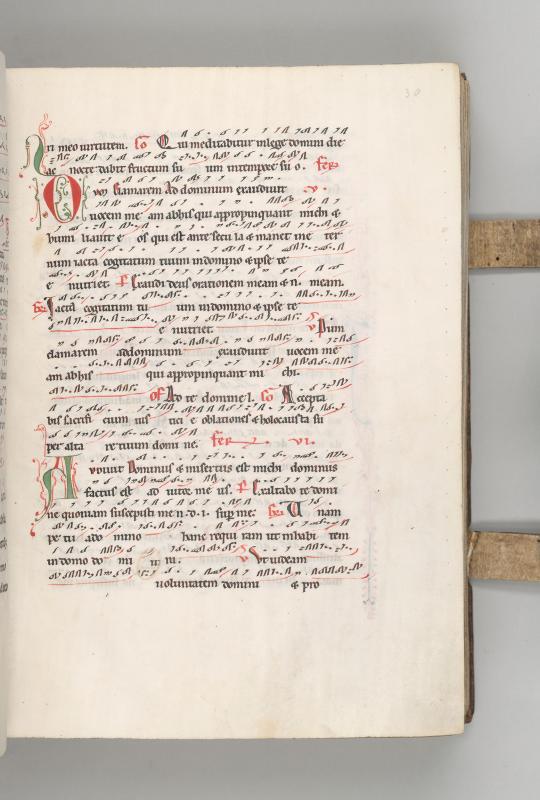 30
rit meo virtutem. Co Qui meditabitur in lege domini die
ac nocte dabit fructum su um in tempore su o. fer
Dum clamarem Ad dominum exaudivit v.
vocem me am ab his qui appropinquant michi &
humi liavit e os qui est ante secu la & manet in e ter
num iacta cogitatum tuum in domino & ipse te
e nutriet. Ps Exaudi deus orationem meam & n. meam.
Gr Iacta cogitatum tu um in domino & ipse te
e nutriet. V Dum
clamarem ad dominum exaudivit vocem me
am ab his qui appropinquant mi chi.
Of Ad te domine l. Co Accepta
bis sacrifi cium ius tici e oblationes & holocausta su
per alta re tuum domi ne. fer VI.
Audivit Dominus & misertus est michi dominus
factus est ad iutor me us. Ps Exaltabo te domi
ne quoniam suscepisti me n. d. i. sup me. Gr Unam
pe tii a do mino hanc requi ram ut inhabi tem
in domo do mi ni. V Ut videam
voluntatem domini & pro